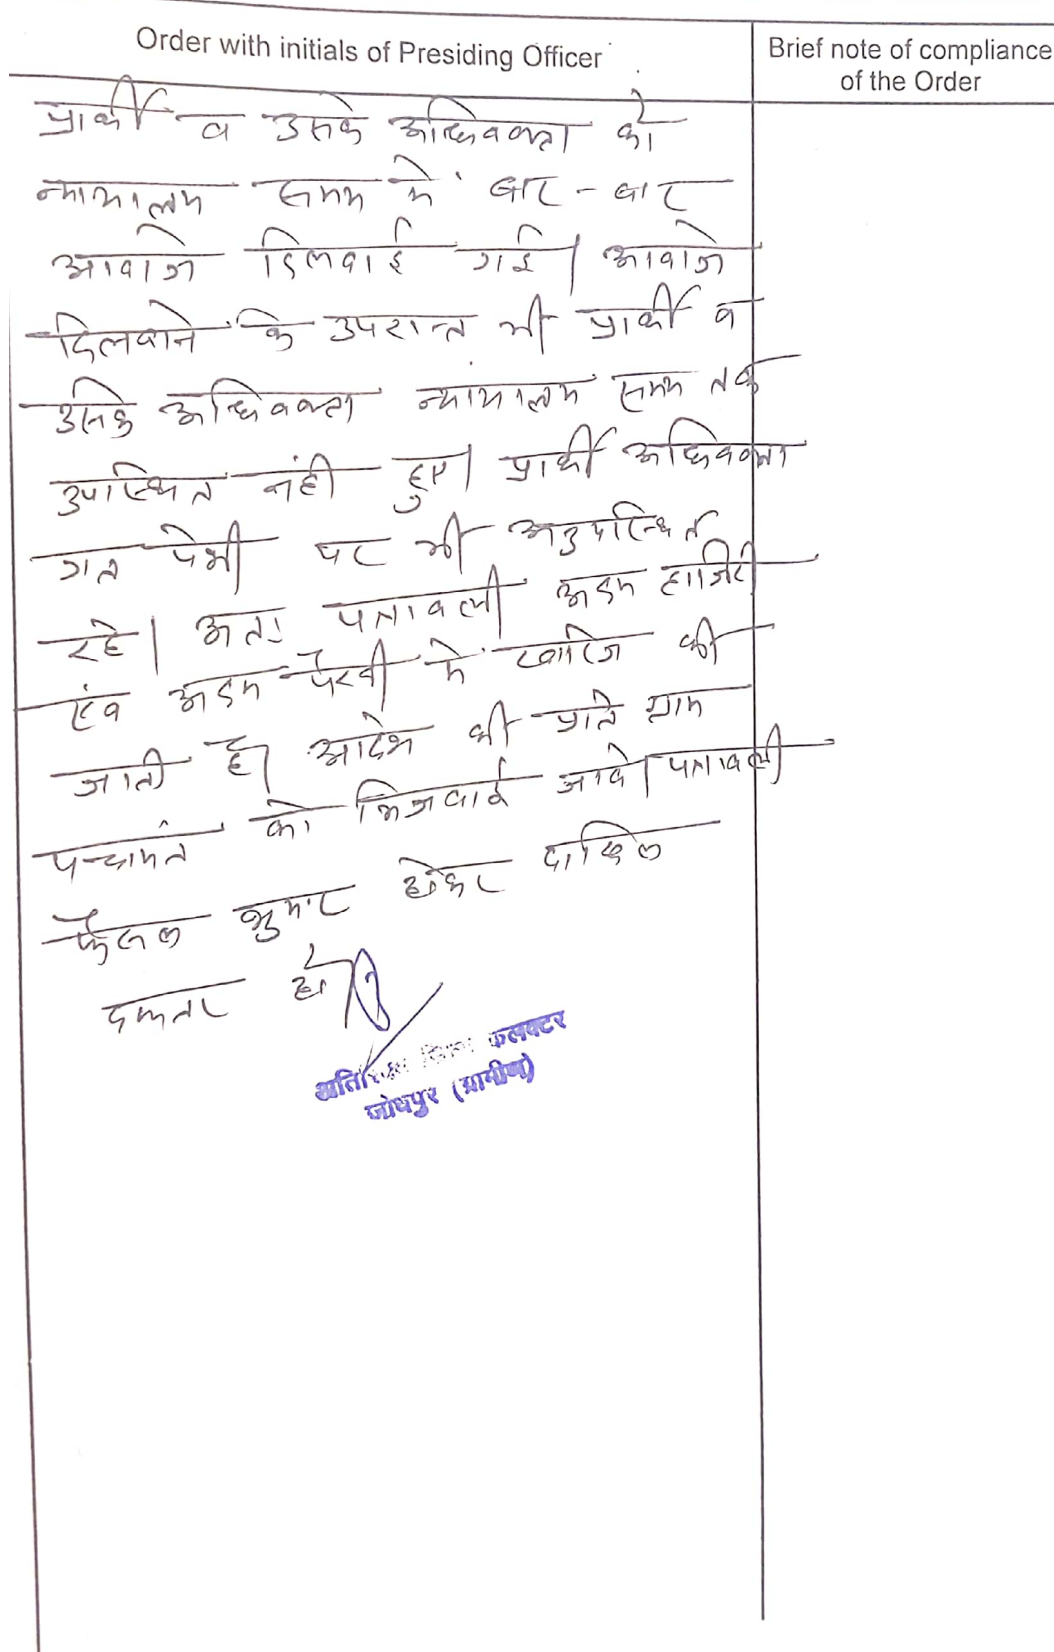 Order with initials of Presiding Officer
Brief note of compliance
of the Order
प्रार्थी व उसके अधिवक्ता को
न्यायालय समय में बार - बार
आवाजे दिलवाई गई। आवाजे
दिलवाने के उपरान्त भी प्रार्थी व
उसके अधिवक्ता न्यायालय समय तक
उपस्थित नंही हुए। प्रार्थी अधिवक्ता
गत पेशी पर भी अनुपस्थित
रहे। अतः पत्रावली अदम हाजिरी
एंव अदम पैरवी में खारिज की
जाती है। आदेश की प्रति ग्राम
पंचायत को भिजवाई जावे। पत्रावली
फैसल शुमार होकर दाखिल
दफ्तर हो।
अतिरिक्त जिला कलक्टर
जोधपुर (ग्रामीण)